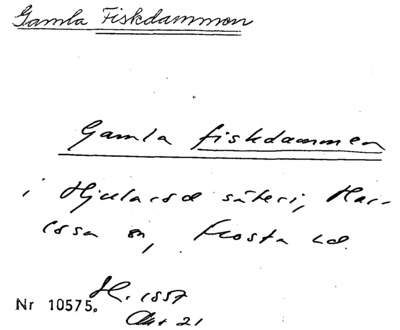 Gamla Fiskdammen
Gamla fiskdammen
i Hjularöd säteri, Har-
sn, Frosta hd.
H. 1857
Nr 10575.
Akt 21